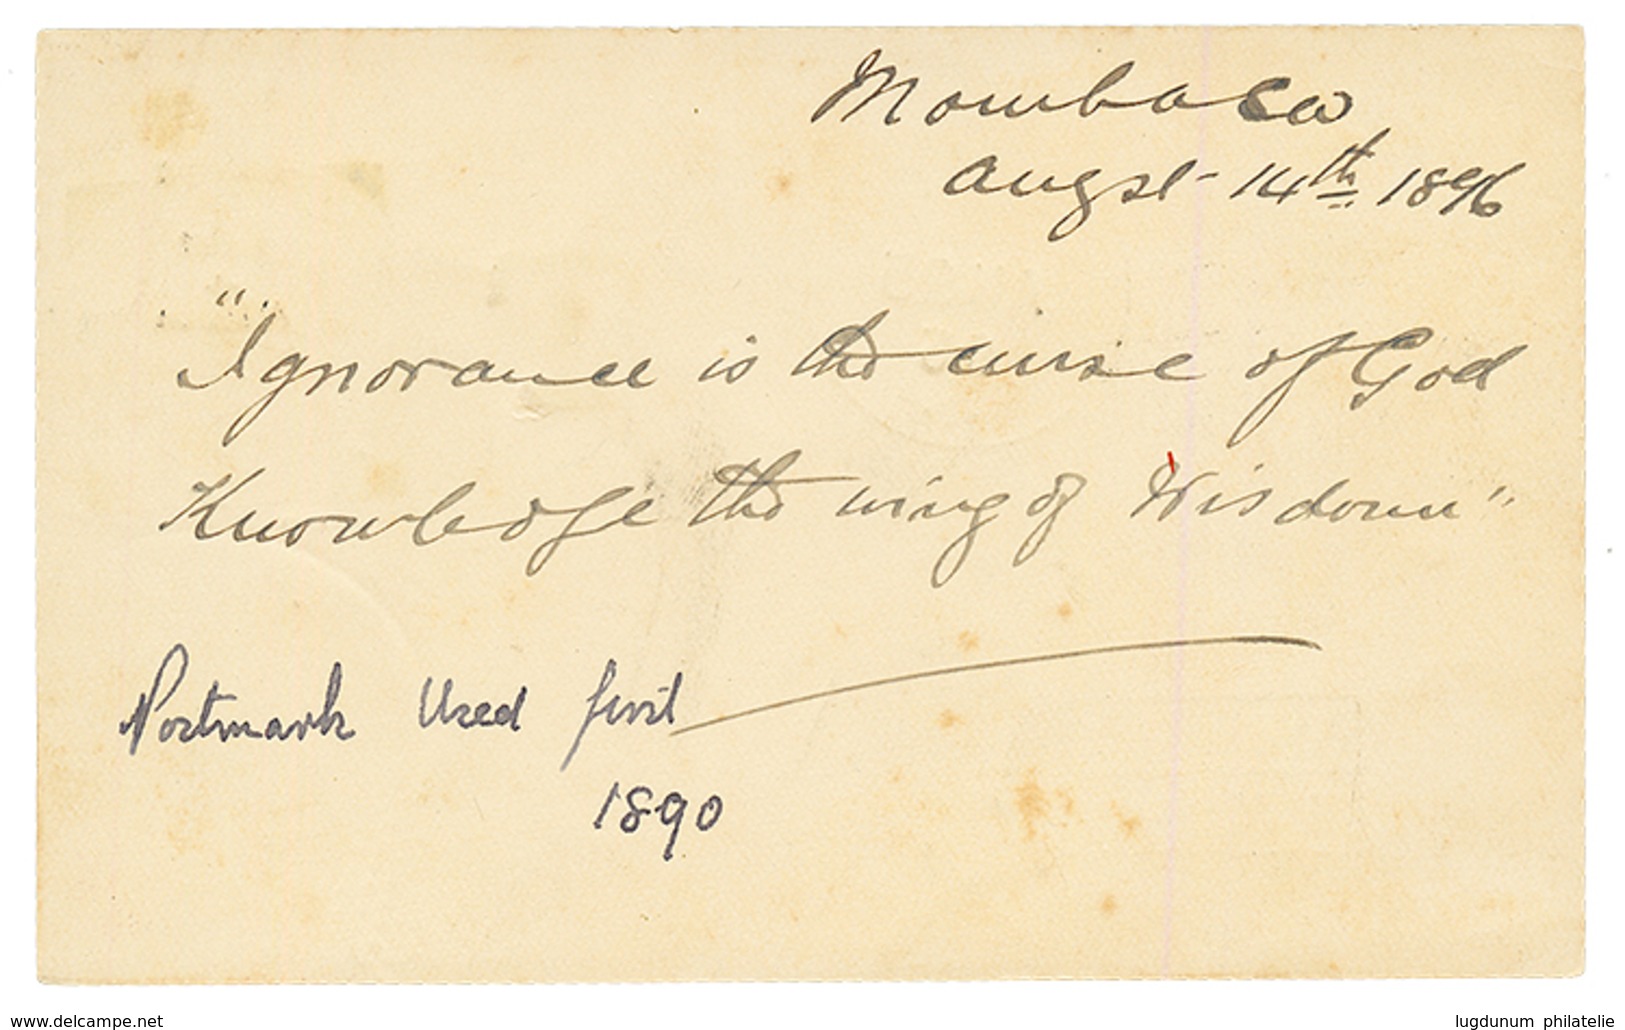 Mombasa
Augst 14th 1896
"Ignorance is the curse of God
Knowledge the wing of Wisdom"
Postmark Used first
1890
www.delcampe.net
lugdunum philatelie